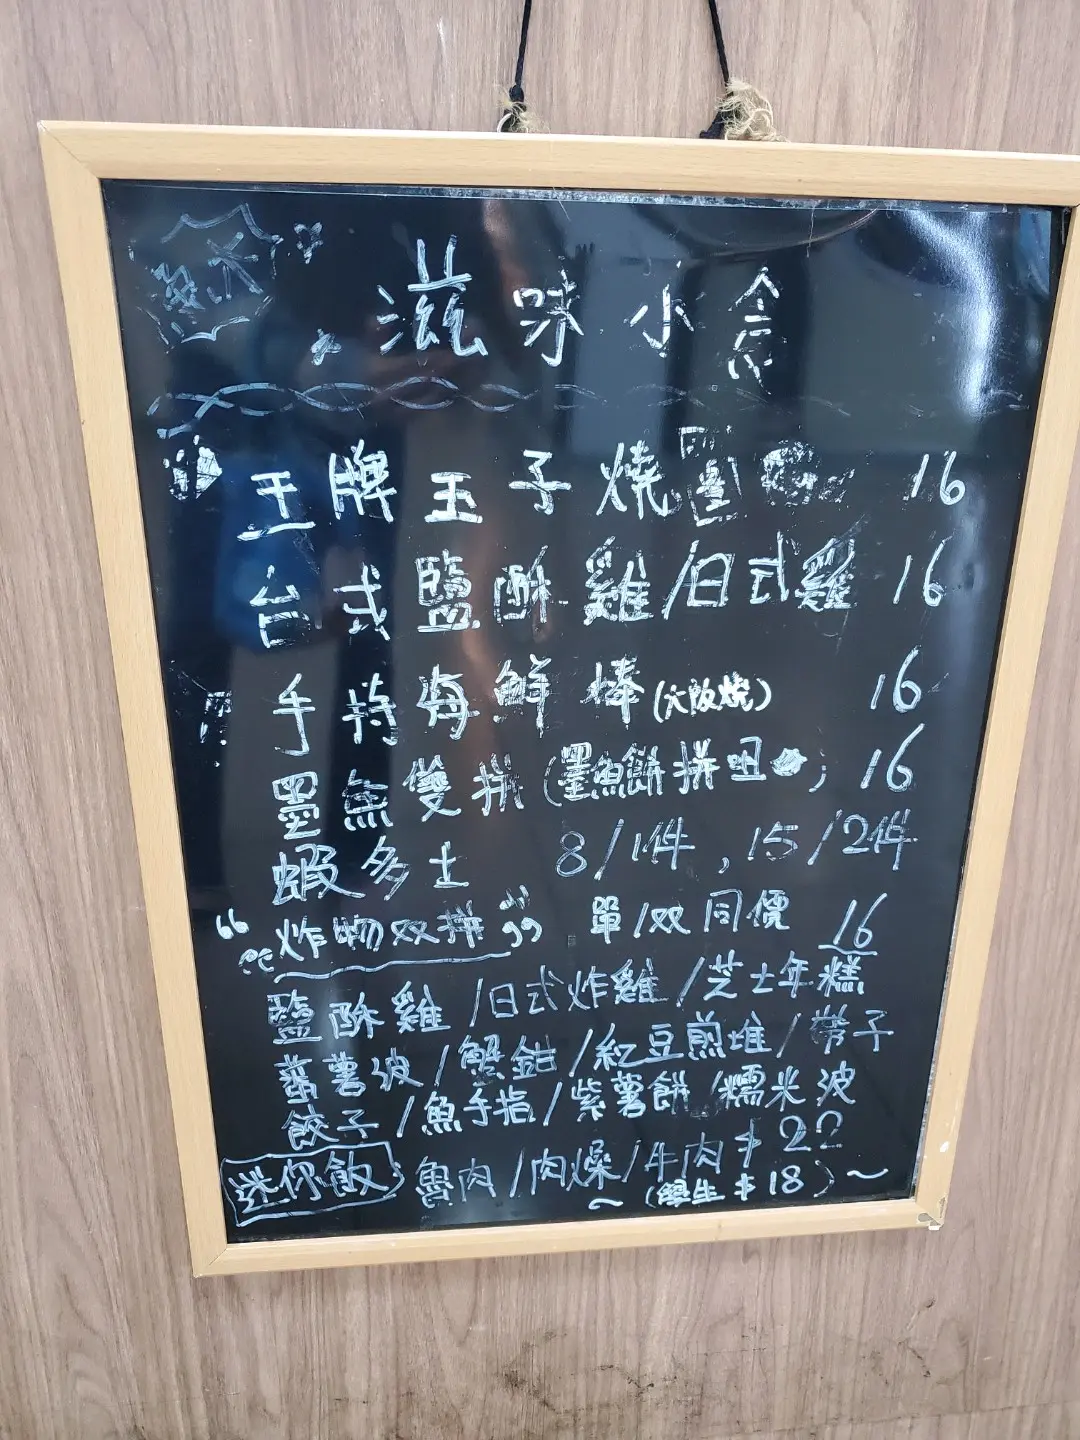 滋味小食
王牌玉子燒 16
台式鹽酥雞/日式雞 16
手持海鮮棒(大阪燒) 16
墨魚雙拼(墨魚餅拼) 16
蝦多士 8/1件,15/2件
“炸物双拼” 單/双同價 16
鹽酥雞/日式炸雞/芝士年糕
蕃薯波/蟹鉗/紅豆煎堆/帶子
餃子/魚手指/紫薯餅/糯米波
迷你飯 魯肉/肉燥/牛肉 $22
~(學生$18)~